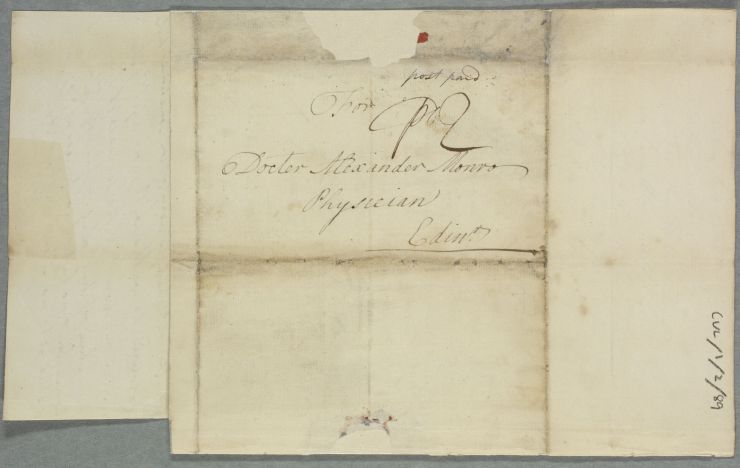 post paid
For
P 2
Docter Alexander Monro
Physician
Edinr
CUL/1/2/89